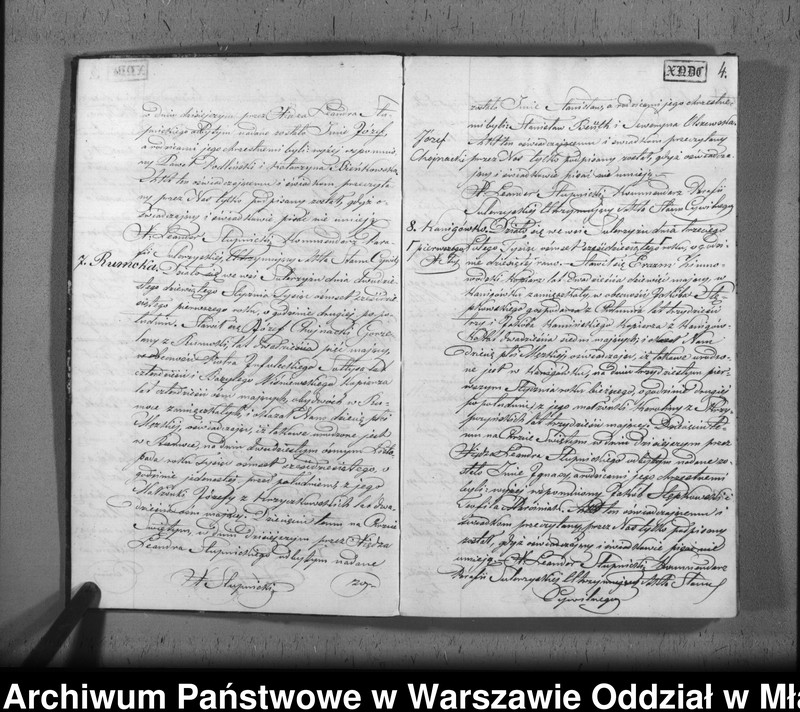 w dniu dzisiejszym przez Xiędza Leandra Słu-
pnickiego odbytym nadane zostało Imie Józef,
a rodzicami jego chrzestnemi byli: wyżej wspomnio-
ny Paweł i Katarzyna Bieńkowska.
Akt ten oświadczającemu i świadkom przeczyta-
ny przez Nas tylko podpisany został, gdyż o-
świadczający i świadkowie pisać nie umieją
X Leander Słupnicki Kommendarz Para-
fii utrzymujący Akta Stanu Cywil:
7. Rumoka. Działo się we wsi dnia dwudzie-
stego dziewiątego Stycznia Tysiąc ośmset sześćdzie-
siątego pierwszego roku, o godzinie drugiej po po-
łudniu. Stawił się Józef Chojnacki
z Rumoki lat dwadzieścia pięć mający,
w obecności Piotra lat
czterdzieści i Wiśniewskiego Kopiarza
lat czterdzieści mających, obydwóch w Ru-
moce zamieszkałych; i okazał Nam dziecię płci
Męzkiej, oświadczając, iż takowe urodzone jest
w Rumoce, na dniu dwudziestym ósmym Listo-
pada roku tysiąc ośmset sześćdziesiątego, o
godzinie jedenastej przed południem z jego
Małżonki Józefy z lat dwa-
dzieścia mającej. Dziecięciu temu na Chrzcie
Świętym, w dniu dzisiejszym przez Xiędza
Leandra Słupnickiego odbytym nadane
X Słupnicki
4.
zostało Imie Stanisław, a rodzicami jego chrzestne-
mi byli: Stanisław i Seweryna Olszewska.
Akt ten oświadczającemu i świadkom przeczytany
przez Nas tylko podpisany został, gdyż oświadcza-
jący i świadkowie pisać nie umieją.
X Leander Słupnicki Kommendarz Parafii
utrzymujący Akta Stanu Cywilnego
Józef
Chojnacki
8. Kanigówko. Działo się we wsi dnia trzeciego
Lutego Tysiąc ośmset sześćdziesiątego
pierwszego roku, o godzi-
nie dziesiątej rano. Stawił się Erazm
Kopiarz lat dwadzieścia dziewięć mający, w
Kanigówku zamieszkały, w obecności Jakóba Stę-
pkowskiego gospodarza z lat trzydzieści
cztery i Jakóba Kamińskiego Kopiarza z Kanigów-
ka lat dwadzieścia siedm mających; i okazał Nam
Dziecię płci Męzkiej oświadczając, iż takowe urodzo-
ne jest w Kanigówku, na dniu trzydziestym pier-
wszym Stycznia roku bieżącego, o godzinie drugiej
po południu, z jego małżonki Karoliny z
lat trzydzieści mającej. Dziecięciu te-
mu na Chrzcie Świętym w dniu dzisiejszym przez
Xiędza Leandra Słupnickiego odbytym nadane zo-
stało Imie Ignacy, a rodzicami jego chrzestnemi
byli: wyżej wspomniony Jakób Stępkowski i
Teofila. Akt ten oświadczającemu i
świadkom przeczytany, przez Nas tylko podpisany
został, gdyż oświadczający i świadkowie pisać nie
umieją. X Leander Słupnicki Kommendarz
Parafii utrzymujący Akta Stanu
Cywilnego
Archiwum Państwowe w Warszawie Oddział w Mła